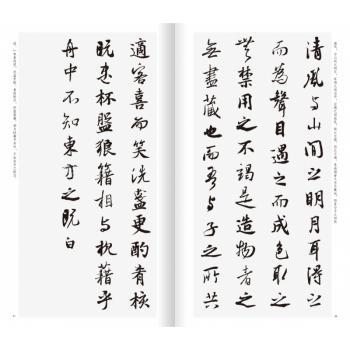 清風与山間之明月耳得之
而為聲目遇之而成色取之
無禁用之不竭是造物者之
無盡藏也而吾与子之所共
適客喜而笑洗盞更酌肴核
既盡杯盤狼籍相与枕藉乎
舟中不知東方之既白